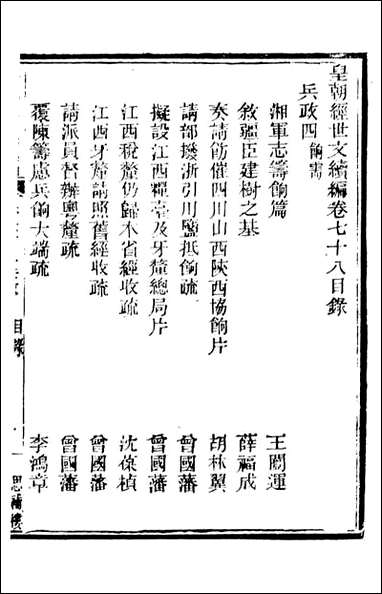 皇朝經世文續編卷七十八目錄
兵政四 餉需
湘軍志籌餉篇 王闓運
敘疆臣建樹之基 薛福成
奏請飭催四川山西陝西協餉片 胡林翼
請部撥浙引川鹽抵餉疏 曾國藩
擬設江西糧臺及牙釐總局片 曾國藩
江西稅釐仍歸本省經收疏 沈葆楨
江西牙釐請照舊經收疏 曾國藩
請派員督辦粵釐疏 曾國藩
覆陳籌慮兵餉大端疏 李鴻章
目錄
一
思補樓